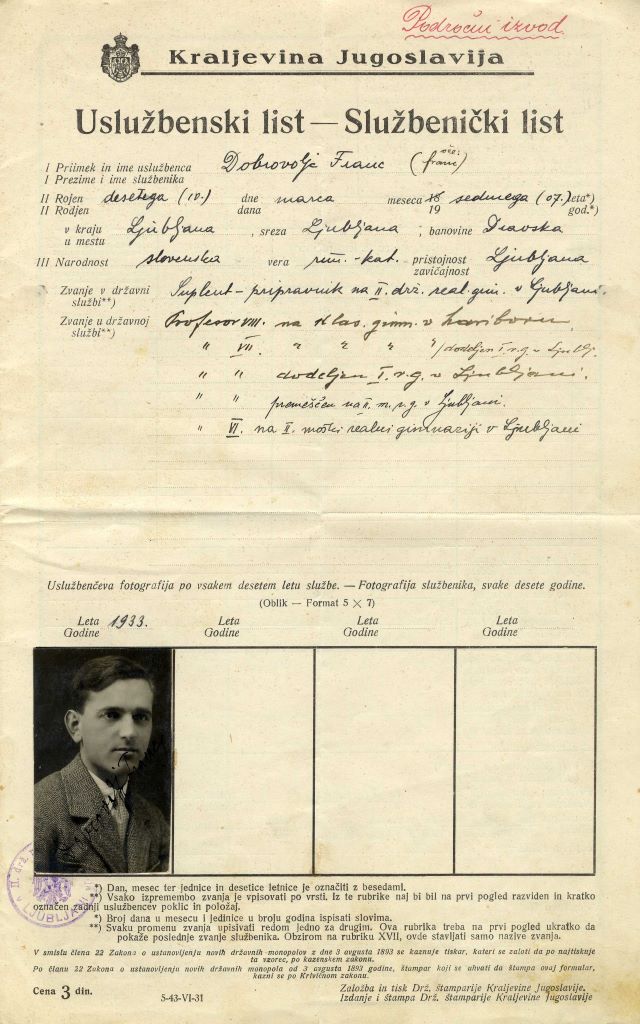 Področni izvod
Kraljevina Jugoslavija
Uslužbenski list — Službenički list
I Priimek in ime uslužbenca Dobrovoljc Franc (oče: Franc)
I Prezime i ime službenika
II Rojen desetega (10.) dne marca meseca 19 sedmega (07.) leta*)
II Rodjen dana 19 god.*)
v kraju Ljubljana, sreza Ljubljana; banovine Dravska
u mestu
III Narodnost slovenska vera rim.-kat. pristojnost Ljubljana
zavičajnost
Zvanje v državni Suplent-pripravnik na II. drž. real. gim. v Ljubljani.
službi**)
Zvanje u državnoj Profesor VIII. na klas. gimn. v Mariboru,
službi**)
" VII. " " " " /dodeljen I. r. g. v Ljublj.
" " dodeljen I. r. g. v Ljubljani.
" " premeščen na II. m. r. g. v Ljubljani.
" VI. na II. moški realni gimnaziji v Ljubljani
Uslužbenčeva fotografija po vsakem desetem letu službe. — Fotografija službenika, svake desete godine.
(Oblik — Format 5 × 7)
Leta 1933. Leta Leta Leta
Godine Godine Godine Godine
II. drž.
LJUBLJANI
*) Dan, mesec ter jednice in desetice letnice je označiti z besedami.
**) Vsako izpremembo zvanja je vpisovati po vrsti. Iz te rubrike naj bi bil na prvi pogled razviden in kratko
označen zadnji uslužbencev poklic in položaj.
*) Broj dana u mesecu i jedinice u broju godina ispisati slovima.
**) Svaku promenu zvanja upisivati redom jedno za drugim. Ova rubrika treba na prvi pogled ukratko da
pokaže poslednje zvanje službenika. Obzirom na rubriku XVII, ovde stavljati samo nazive zvanja.
V smislu člena 22 Zakona o ustanovljenju novih državnih monopolov z dne 3 avgusta 1893 se kaznuje tiskar, kateri se zaloti da po natiskuje
ta vzorec, po kazenskem zakonu.
Po članu 22 Zakona o ustanovljenju novih državnih monopola od 3 avgusta 1893 godine, štampar koji se uhvati da štampa ovaj formular,
kazni se po Krivičnom zakonu.
Cena 3 din. 5-43-VI-31 Založba in tisk Drž. štamparije Kraljevine Jugoslavije.
Izdanje i štampa Drž. štamparije Kraljevine Jugoslavije